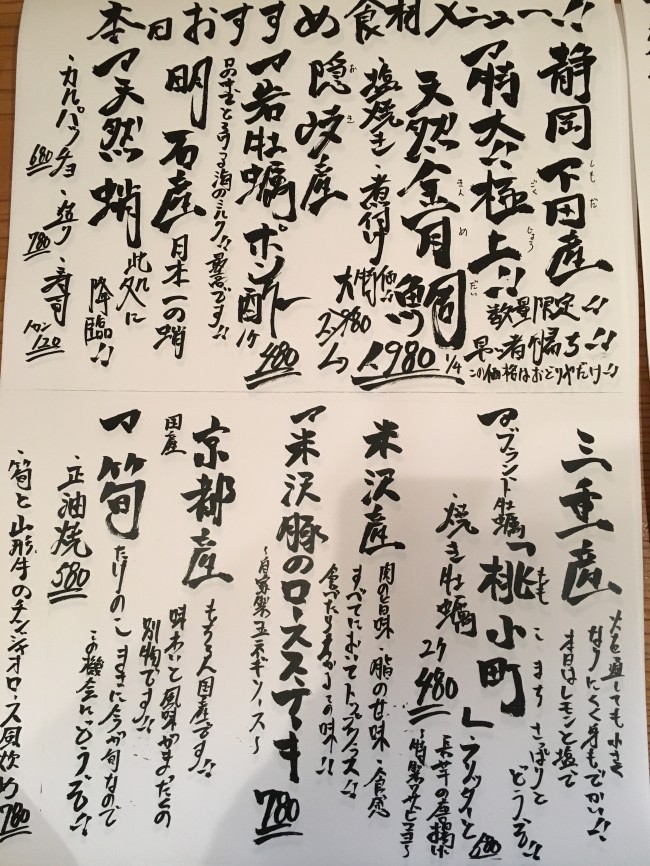 本日おすすめ食材メニュー!!
静岡 下田産
しもだ
特大極上!!
ごくじょう
数量限定!!
早い者勝ち!!
この価格はおどりやだけ!!
天然金目鯛
きんめだい
1/4
塩焼き 煮付け
大特価!!
1,980
隠岐産
おき
岩牡蠣ポン酢
1ケ
480
口の中でとろける海のミルク!! 最高です!!
明石産
日本一の蛸
天然 蛸
此処に
降臨!!
・カルパッチョ
680
・造り
780
・寿司
1カン
120
三重産
火を通しても小さく
なりにくく身もでかい!!
本日はレモンと塩で
さっぱりと
どうぞ!!
ブランド牡蠣「桃小町」
もも こまち
・焼き牡蠣
2ケ
480
長芋の唐揚げ
米沢産
肉の旨味・脂の甘味・食感
すべてにおいてトップクラス!!
米沢豚のロースステーキ
780
京都産
国産
もちろん国産です!!
味わいと風味がまったくの
別物です!!
筍
たけのこ
まさに今が旬なので
この機会にどうぞ!!
・正油焼
580
・筍と山形牛のチンジャオロース風炒め
780